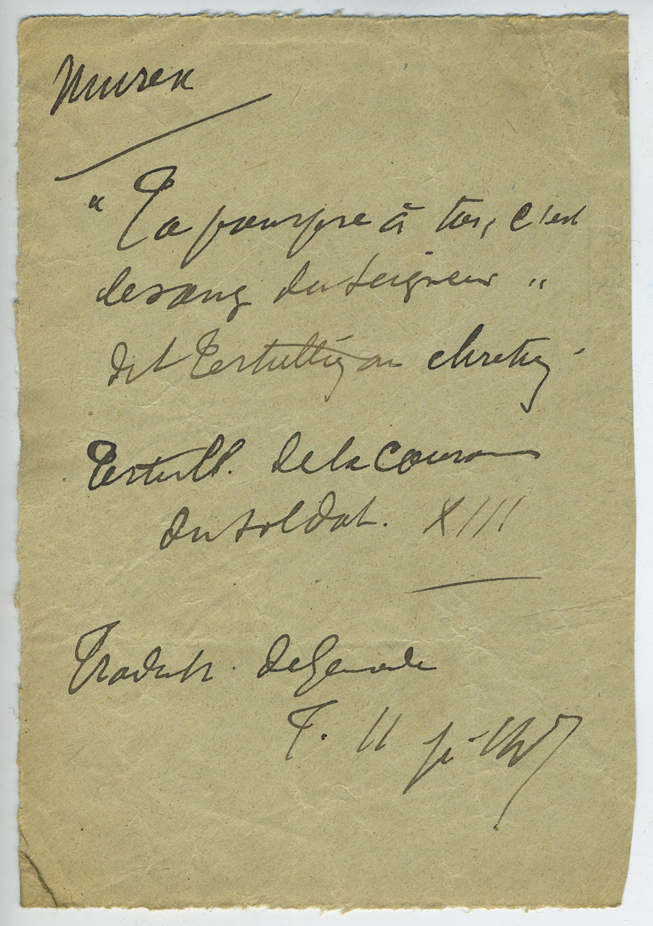 Murex
" Ta pourpre à toi, c'est
le sang du Seigneur "
dit Tertullien au chrétien
Tertull. de la Couronne
du soldat. XIII
Traduct. de Genoude
T. II